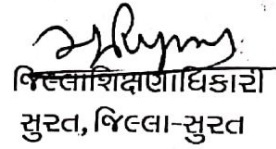 જિલ્લાશિક્ષણાધિકારી
સુરત, જિલ્લા-સુરત